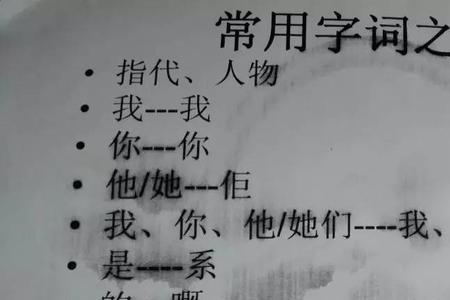 常用字词之
• 指代、人物
• 我---我
• 你----你
• 他/她---佢
• 我、你、他/她们----我、
• 是-----系